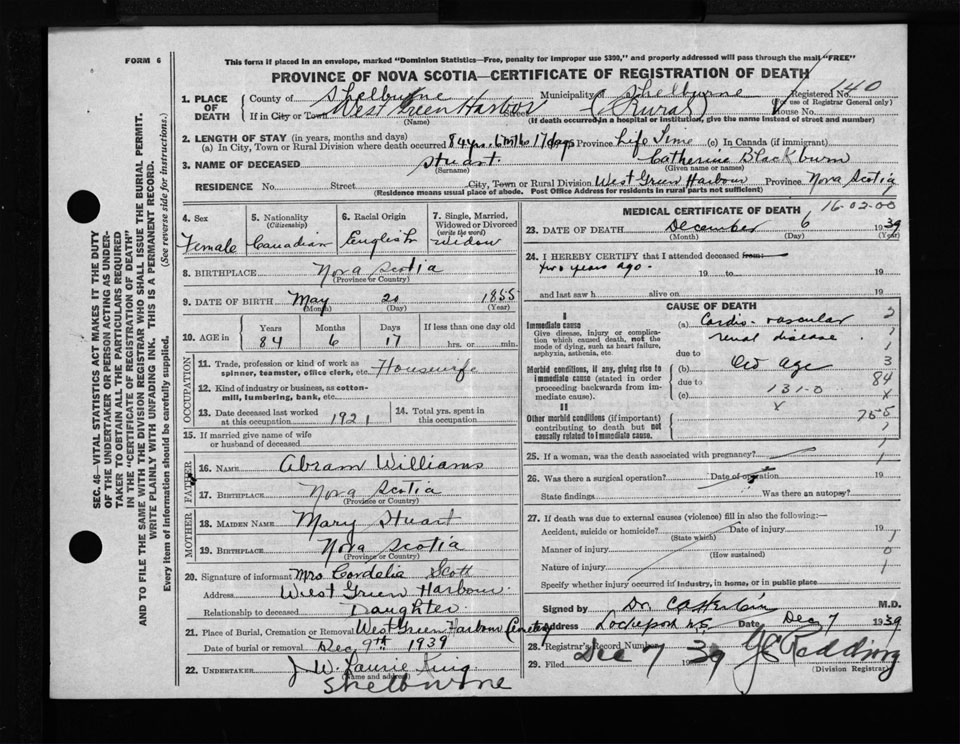 FORM 6
This form if placed in an envelope, marked "Dominion Statistics—Free, penalty for improper use $300," and properly addressed will pass through the mail "FREE"
PROVINCE OF NOVA SCOTIA—CERTIFICATE OF REGISTRATION OF DEATH
Registered No. 140
(For use of Registrar General only)
1. PLACE OF DEATH
County of Shelburne Municipality of Shelburne
If in City or Town West Green Harbor Street (Rural) House No.
(Name) (If death occurred in a hospital or institution, give the name instead of street and number)
2. LENGTH OF STAY (in years, months and days)
(a) In City, Town or Rural Division where death occurred 84 yrs. 6 mths 17 days Province Life Time (c) In Canada (if immigrant)
3. NAME OF DECEASED Stuart Catherine Blackburn
(Surname) (Given name or names)
RESIDENCE No. Street City, Town or Rural Division West Green Harbour Province Nova Scotia
(Residence means usual place of abode. Post Office Address for residents in rural parts not sufficient)
4. Sex
Female
5. Nationality
(Citizenship)
Canadian
6. Racial Origin
English
7. Single, Married, Widowed or Divorced
(write the word)
Widow
8. BIRTHPLACE Nova Scotia
(Province or Country)
9. DATE OF BIRTH May 20 1855
(Month) (Day) (Year)
10. AGE in
Years Months Days If less than one day old
84 6 17 hrs. or min.
OCCUPATION
11. Trade, profession or kind of work as spinner, teamster, office clerk, etc. Housewife
12. Kind of industry or business, as cotton-mill, lumbering, bank, etc.
13. Date deceased last worked at this occupation 1921
14. Total yrs. spent in this occupation
15. If married give name of wife or husband of deceased
FATHER
16. NAME Abram Williams
17. BIRTHPLACE Nova Scotia
(Province or Country)
MOTHER
18. MAIDEN NAME Mary Stuart
19. BIRTHPLACE Nova Scotia
(Province or Country)
20. Signature of informant Mrs Cordelia Scott
Address West Green Harbour
Relationship to deceased Daughter
21. Place of Burial, Cremation or Removal West Green Harbour Cemetery
Date of burial or removal Dec 9th 1939
22. UNDERTAKER J W. Laurie King
(Name and address)
Shelburne
MEDICAL CERTIFICATE OF DEATH
16-02-00
23. DATE OF DEATH December 6 1939
(Month) (Day) (Year)
24. I HEREBY CERTIFY that I attended deceased from:
two years ago. 19 to 19
and last saw h alive on 19
CAUSE OF DEATH
I
Immediate cause
Give disease, injury or complication which caused death, not the mode of dying, such as heart failure, asphyxia, asthenia, etc.
(a) Cardio-vascular 2
renal disease 1
due to 1
Morbid conditions, if any, giving rise to immediate cause (stated in order proceeding backwards from immediate cause).
(b) Old Age 3
due to 84
(c) 131-0 x
x
755
II
Other morbid conditions (if important) contributing to death but not causally related to immediate cause.
1
1
25. If a woman, was the death associated with pregnancy? 1
26. Was there a surgical operation? Date of operation
State findings Was there an autopsy?
27. If death was due to external causes (violence) fill in also the following:—
Accident, suicide or homicide? Date of injury 19
(State which)
Manner of injury 0
(How sustained)
Nature of injury 1
Specify whether injury occurred in industry, in home, or in public place
Signed by Dr. M.D.
Address Lockeport N.S. Date Dec 7 1939
28. Registrar's Record Number
29. Filed Dec 7 1939 Redding
(Division Registrar)
SEC. 46—VITAL STATISTICS ACT MAKES IT THE DUTY
OF THE UNDERTAKER OR PERSON ACTING AS UNDER-
TAKER TO OBTAIN ALL THE PARTICULARS REQUIRED
IN THE "CERTIFICATE OF REGISTRATION OF DEATH"
AND TO FILE THE SAME WITH THE DIVISION REGISTRAR WHO SHALL ISSUE THE BURIAL PERMIT.
WRITE PLAINLY WITH UNFADING INK. THIS IS A PERMANENT RECORD.
Every item of information should be carefully supplied. (See reverse side for instructions.)